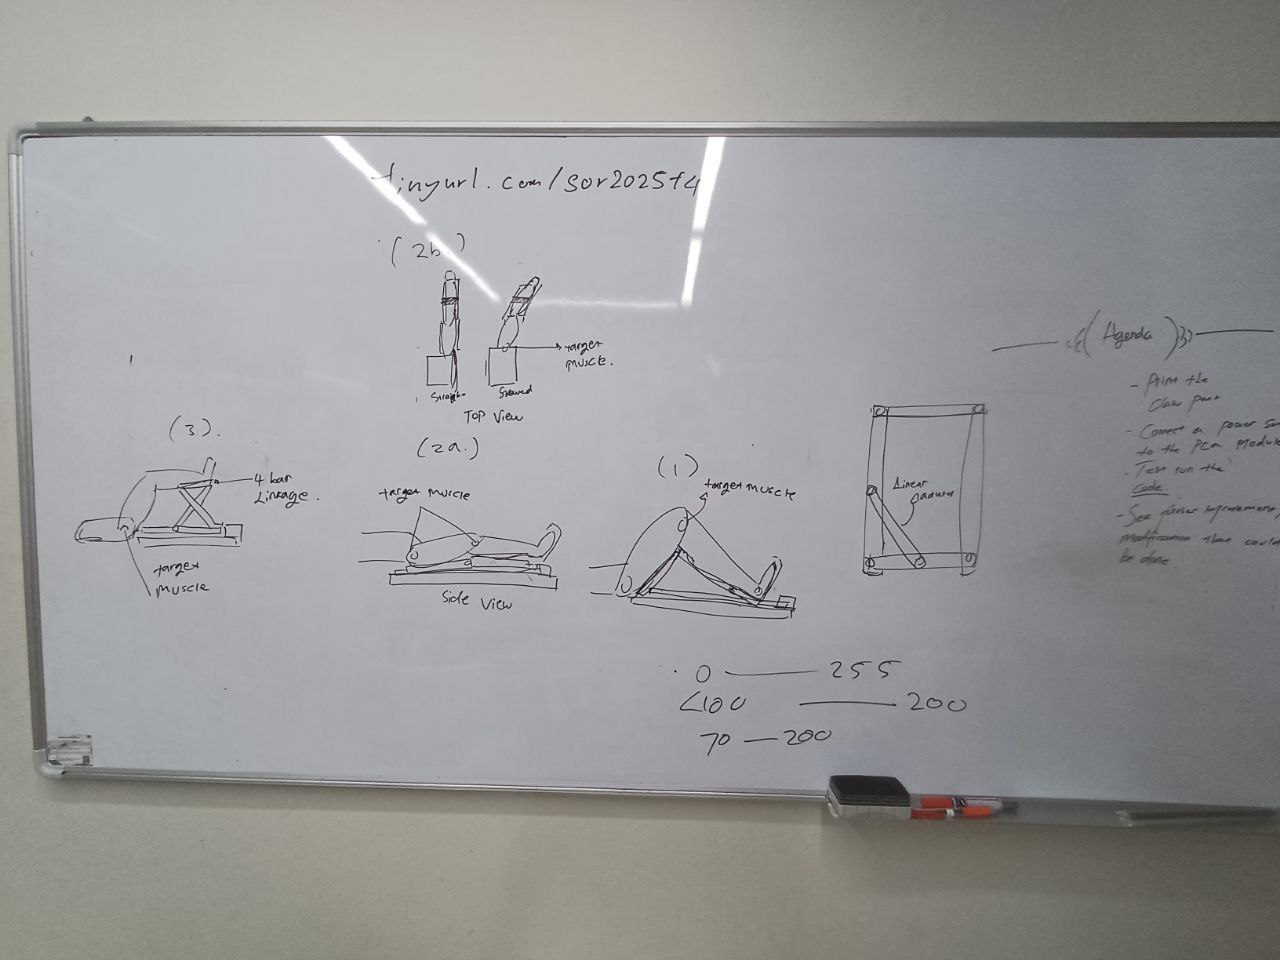 tinyurl.com/sor2025t4
(2b)
target
muscle.
Straight
Skewed
TOP View
(3).
4 bar
Linkage.
target
muscle
(2a.)
target muscle
Side View
(1)
target muscle
Linear
0 — 255
<100 — 200
70 — 200
Agenda
- Print the
Claw part
- Connect a power
to the PCA Module
- Test run the
Code.
- See further improvement,
modification that could
be done.